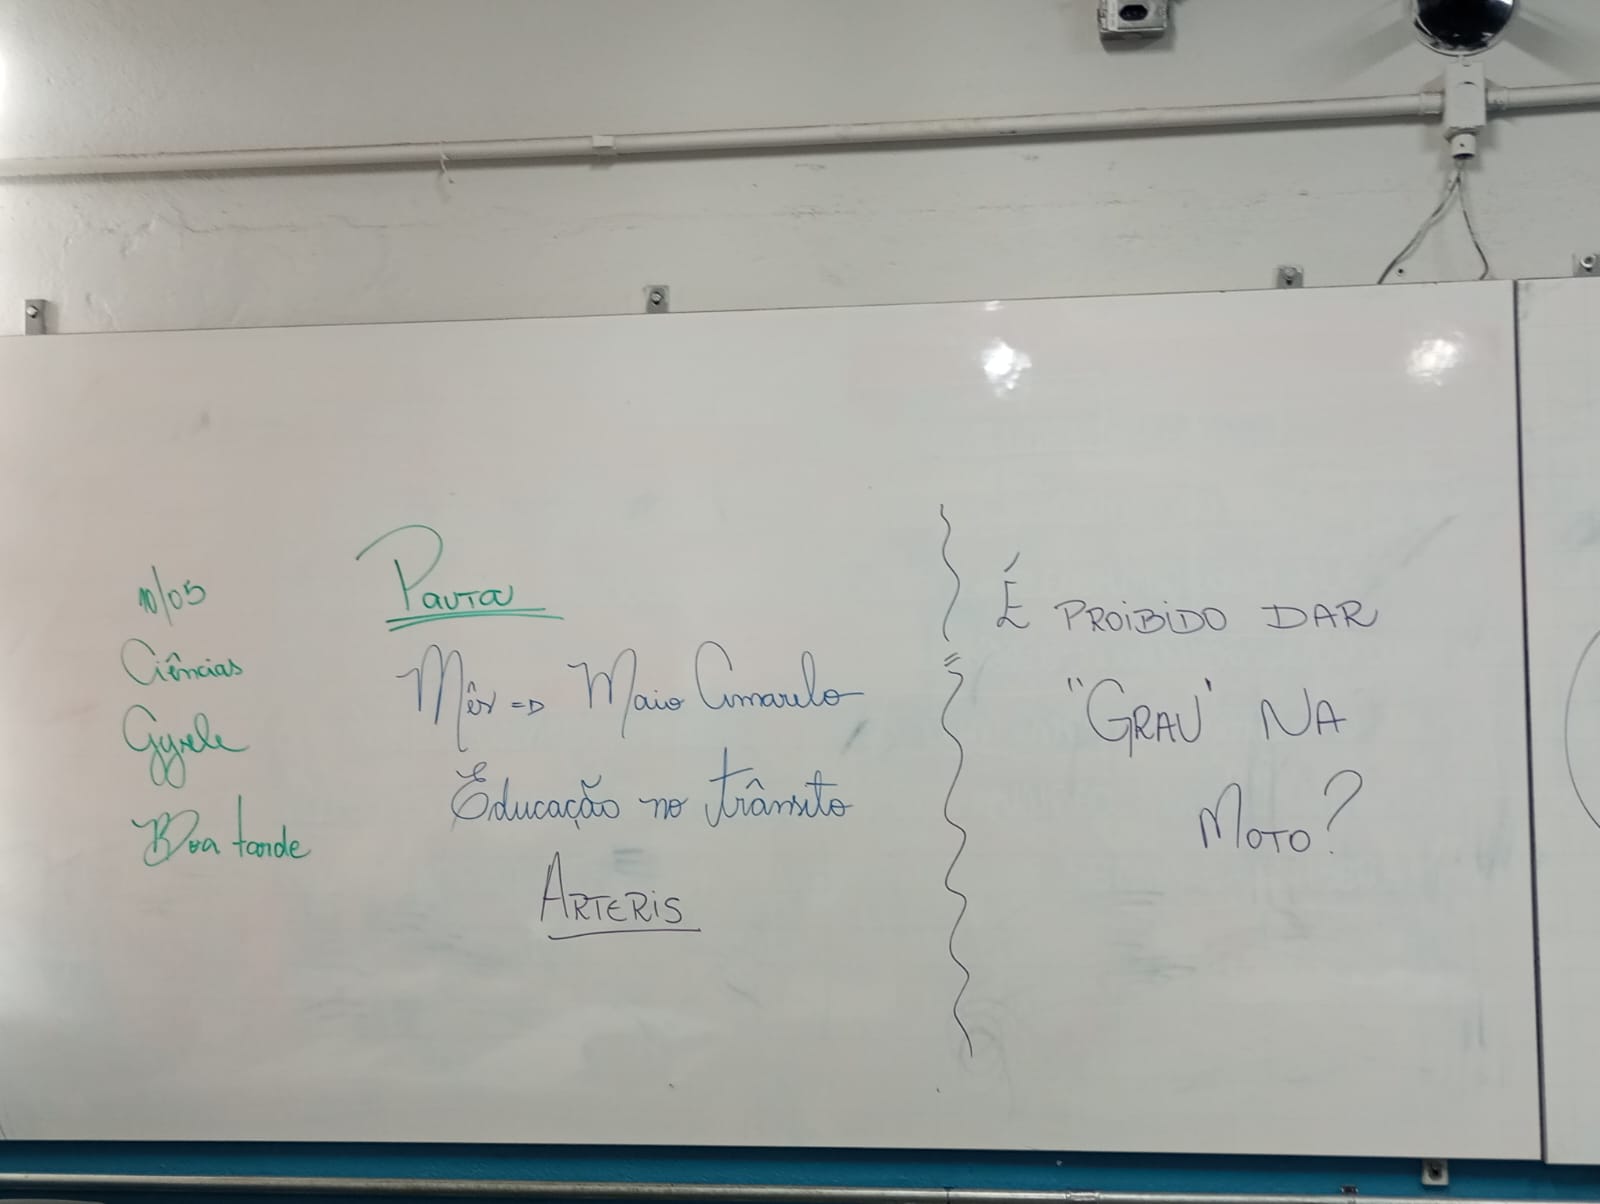 10/05
Ciências
Gyzele
Boa tarde
Pauta
Mês => Maio Amarelo
Educação no trânsito
ARTERIS
É PROIBIDO DAR
"GRAU" NA
MOTO?